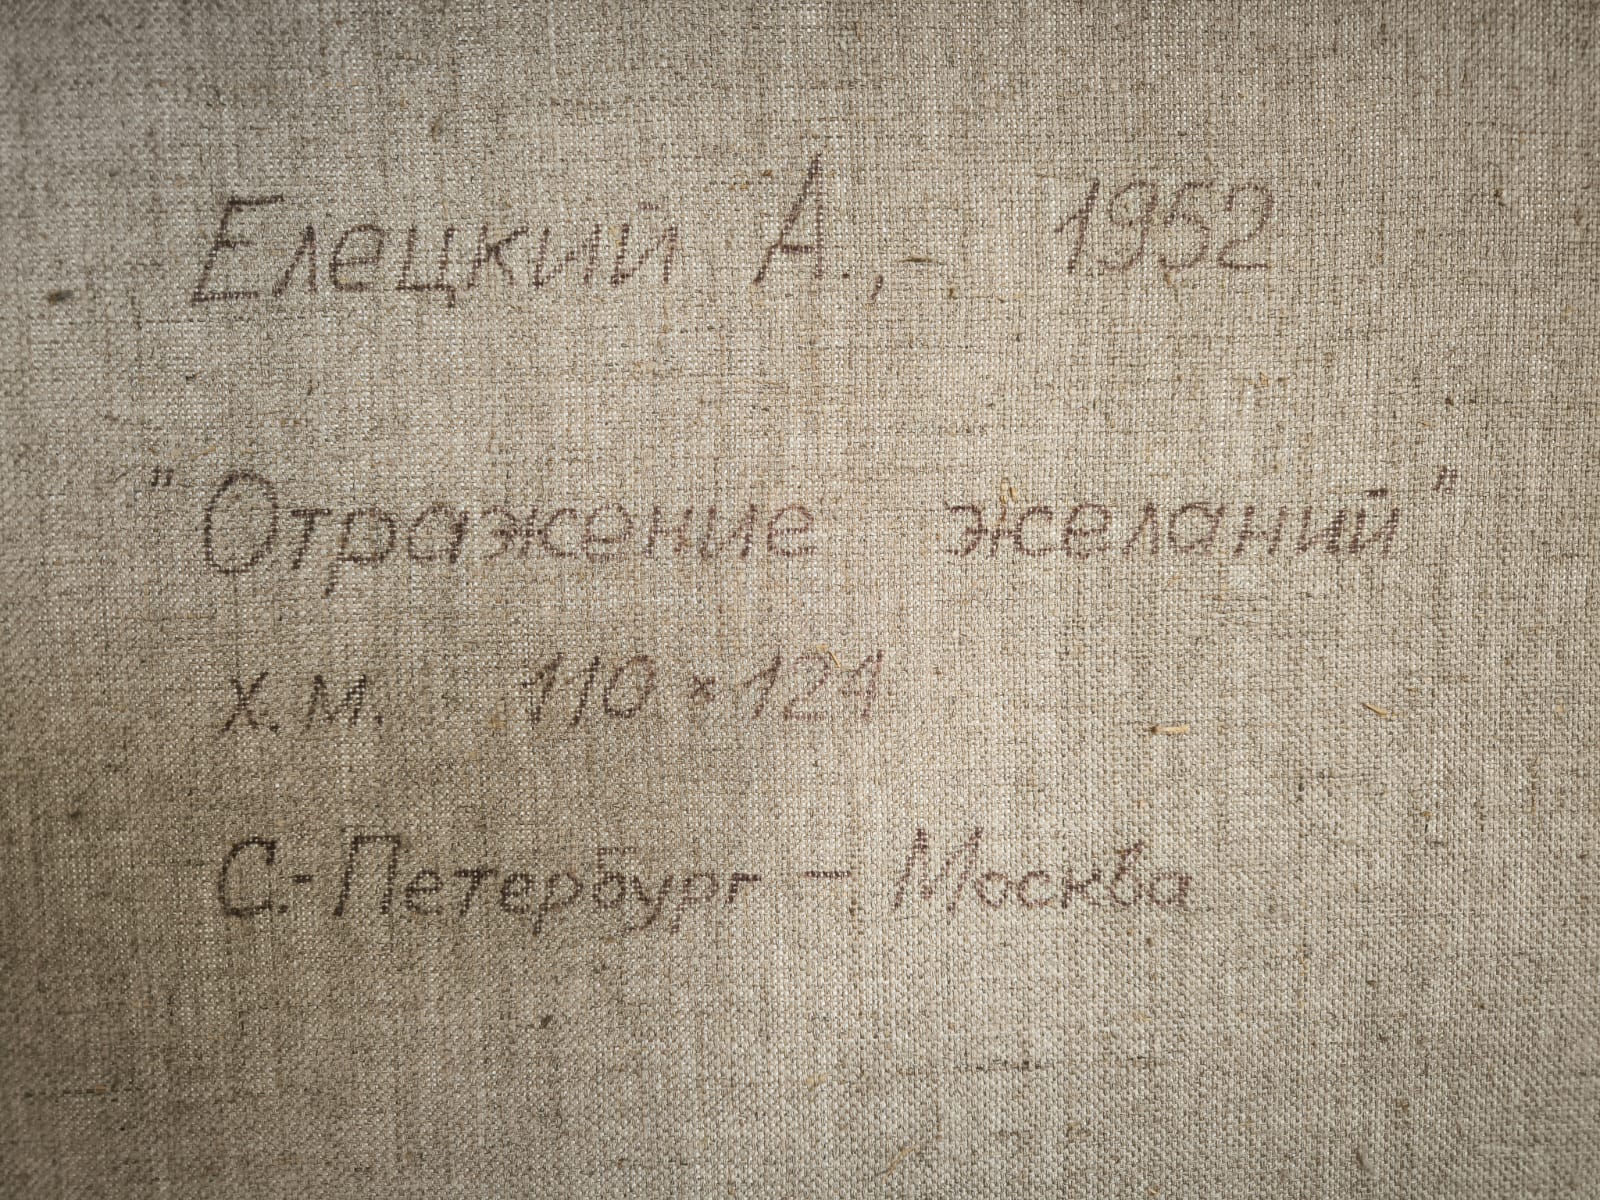 Елецкий А., - 1952
"Отражение желаний"
х.м. 110 × 121
С.-Петербург – Москва